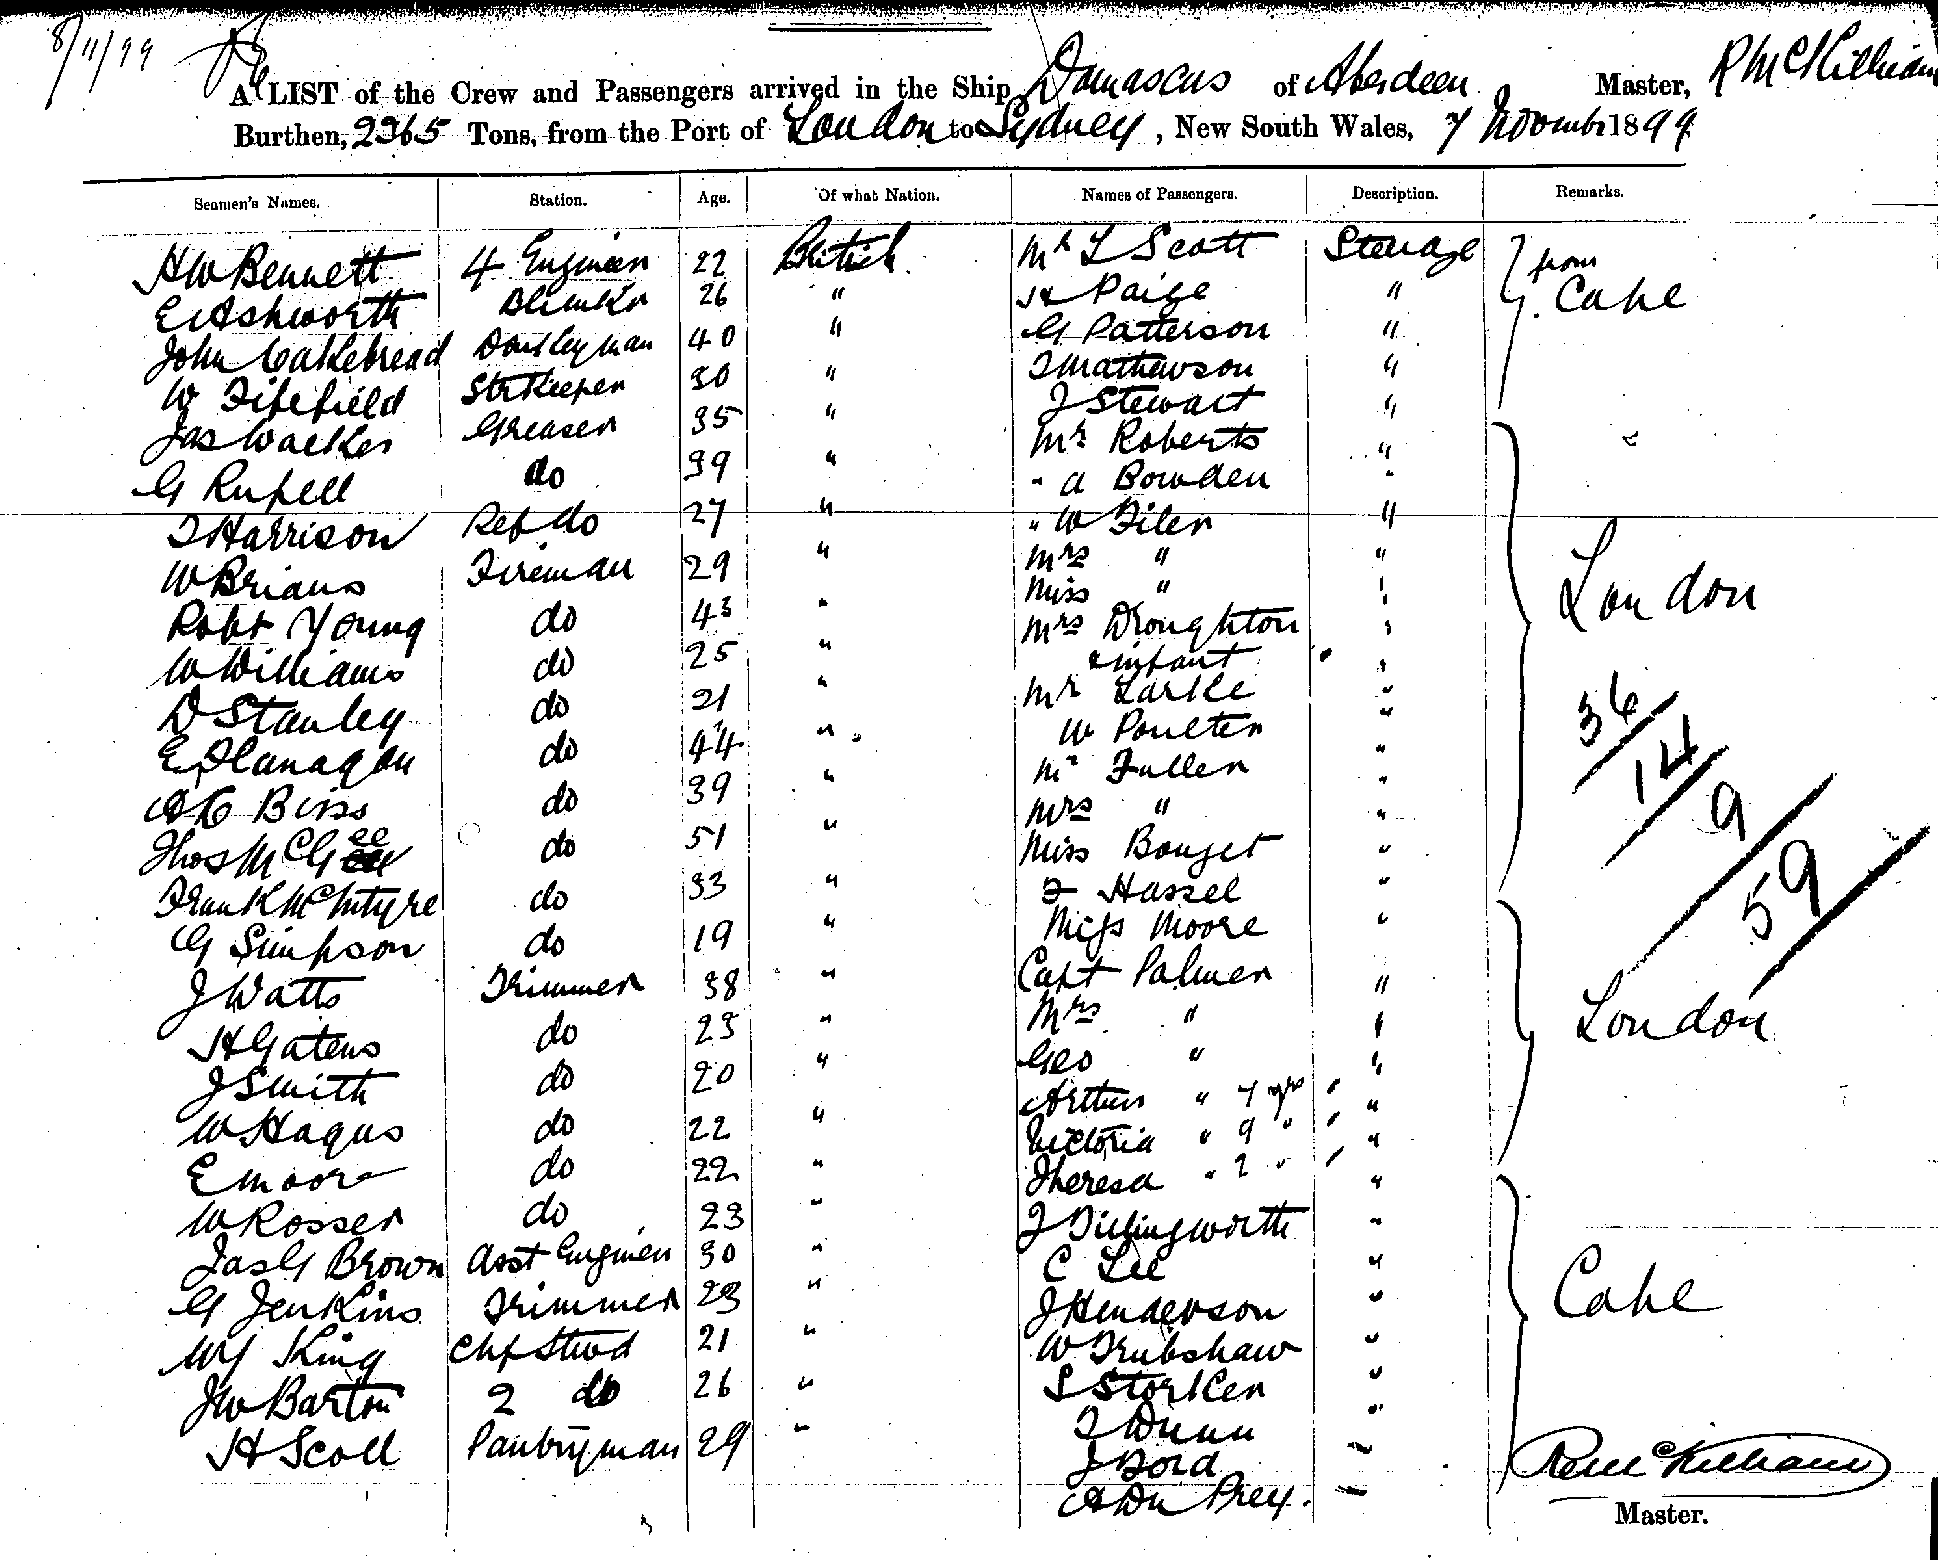 8/11/99
A LIST of the Crew and Passengers arrived in the Ship Damascus of Aberdeen Master, R McKilliam
Burthen, 2365 Tons, from the Port of London to Sydney, New South Wales, 7 Novembr 1899
Seamen's Names. Station. Age. Of what Nation. Names of Passengers. Description. Remarks.
HW Bennett 4 Engineer 22 British Mr L Scott Steerage from
E Ashworth 26 " H Paige " Cape
John Cakebread Donkeyman 40 " G Patterson "
W Fifefield Storekeeper 30 " T Mathewson "
Jas Walker Greaser 35 " J Stewart "
G Russell do 39 " Mr Roberts "
T Harrison Ref do 27 " " A Bowden "
W Brians Fireman 29 " " W Filer "
Robt Young do 43 " Mrs " "
W Williams do 25 " Miss " " London
D Stanley do 21 " Mrs Droughton "
E Flanagan do 44 " & infant "
A C Biss do 39 " Mr Larke "
Thos McGee do 51 " W Poulter " 36
Frank McIntyre do 33 " Mr Fuller " 14
G Simpson do 19 " Mrs " " 9
J Watts Trimmer 38 " Miss Bouget " 59
H Gatens do 23 " F Hassel "
J Smith do 20 " Miss Moore "
W Hagus do 22 " Capt Palmer "
E Moore do 22 " Mrs " " London
W Rosser do 23 " Geo " "
Jas G Brown Asst Engineer 30 " Arthur " 7 yrs "
G Jenkins Trimmer 23 " Victoria " 9 " "
WJ King Chf Stwd 21 " Theresa " 2 " "
JW Barton 2 do 26 " J Dillingworth "
H Scoll Pantryman 29 " C Lee "
J Henderson " Cape
W Trubshaw "
S Storken "
T Dunn "
J Boid "
A Du Preez. "
R McKilliam
Master.